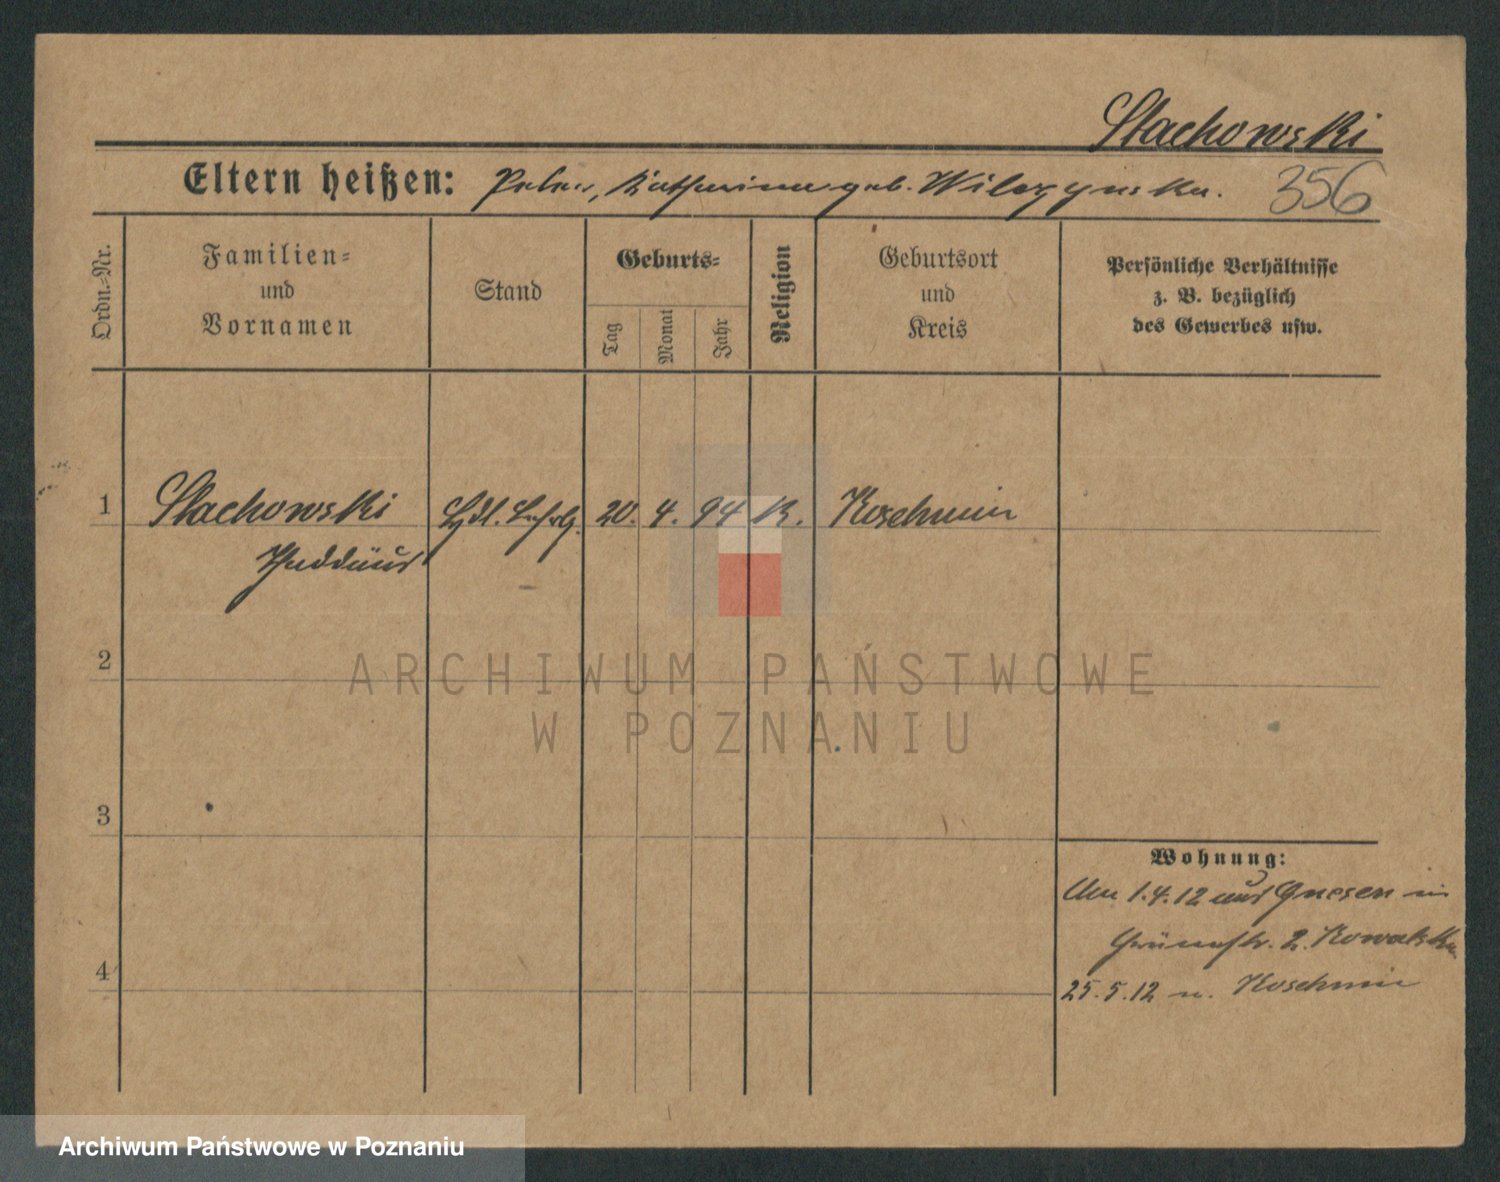 Stachowski
Eltern heißen: Peter, Katharina geb. Wilczynska.
356
Ordn.-Nr.
Familien-
und
Vornamen
Stand
Geburts-
Tag
Monat
Jahr
Religion
Geburtsort
und
Kreis
Persönliche Verhältnisse
z. B. bezüglich
des Gewerbes usw.
1 Stachowski Hdl. Lehrlg. 20. 4. 94 K. Koschmin
Thaddäus
2
ARCHIWUM PAŃSTWOWE
W POZNANIU
3
Wohnung:
Am 1.4.12 aus Gnesen in
2. Kowalska
4
25.5.12 n. Koschmin
Archiwum Państwowe w Poznaniu